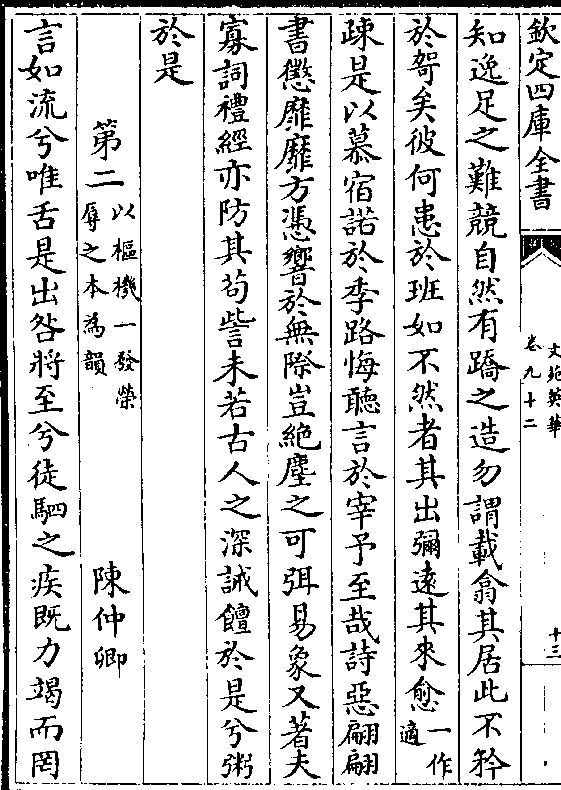 欽定四庫全書
文苑英華
卷九十二
十三
知逸足之難競自然有蹻之造勿謂載翕其居此不矜
於哿矣彼何患於班如不然者其出彌遠其來愈一作適
疎是以慕宿諾於季路悔聽言於宰予至哉詩惡翩翩
書懲靡靡方憑響於無際豈絶塵之可弭易象又著夫
寡詞禮經亦防其苟訾未若古人之深誡饘於是兮粥
於是
第二以樞機一發榮辱之本為韻 陳仲卿
言如流兮唯舌是出咎將至兮徒駟之疾既力竭而罔